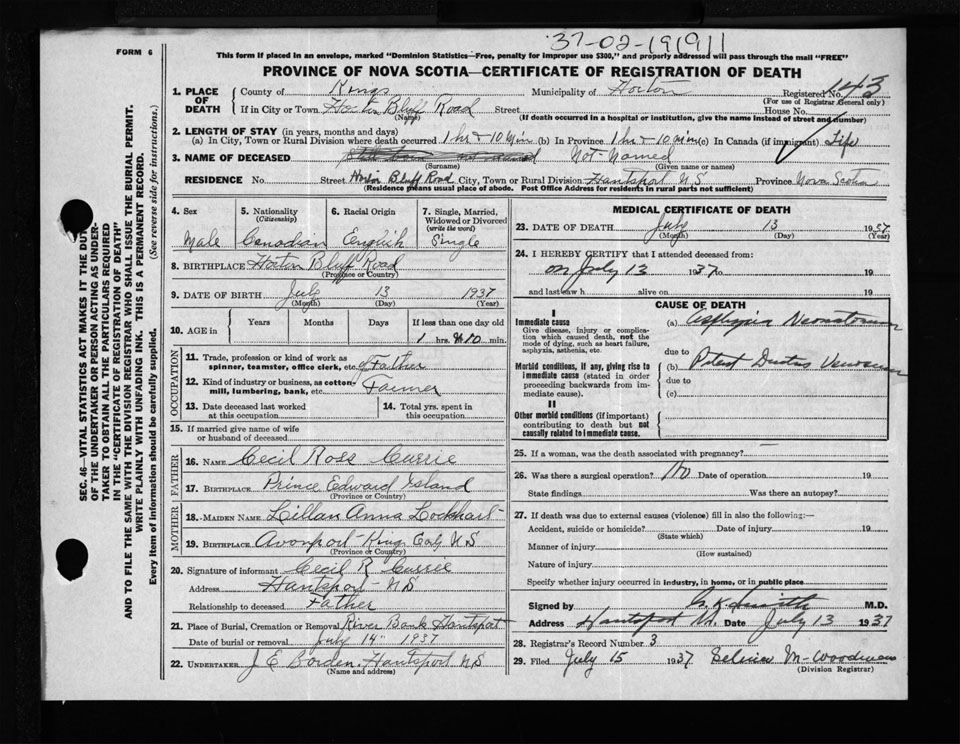 37-02-191911
FORM 6
This form if placed in an envelope, marked "Dominion Statistics—Free, penalty for improper use $300," and properly addressed will pass through the mail "FREE"
PROVINCE OF NOVA SCOTIA—CERTIFICATE OF REGISTRATION OF DEATH
1. PLACE OF DEATH
County of Kings Municipality of Horton Registered No. 143
(For use of Registrar General only)
If in City or Town Horton Bluff Road Street House No.
(Name) (If death occurred in a hospital or institution, give the name instead of street and number)
2. LENGTH OF STAY (in years, months and days)
(a) In City, Town or Rural Division where death occurred 1 hr + 10 min (b) In Province 1 hr + 10 min (c) In Canada (if immigrant) Life
3. NAME OF DECEASED Still born not named Not-Named
(Surname) (Given name or names)
RESIDENCE No. Street Horton Bluff Road City, Town or Rural Division Hantsport N S Province Nova Scotia
(Residence means usual place of abode. Post Office Address for residents in rural parts not sufficient)
4. Sex 5. Nationality (Citizenship) 6. Racial Origin 7. Single, Married, Widowed or Divorced (write the word)
Male Canadian English Single
8. BIRTHPLACE Horton Bluff Road
(Province or Country)
9. DATE OF BIRTH July 13 1937
(Month) (Day) (Year)
10. AGE in Years Months Days If less than one day old
1 hrs. 10 min.
OCCUPATION
11. Trade, profession or kind of work as spinner, teamster, office clerk, etc. of Father
12. Kind of industry or business, as cotton mill, lumbering, bank, etc. Farmer
13. Date deceased last worked at this occupation
14. Total yrs. spent in this occupation
15. If married give name of wife or husband of deceased
FATHER
16. NAME Cecil Ross Currie
17. BIRTHPLACE Prince Edward Island
(Province or Country)
MOTHER
18. MAIDEN NAME Lillan Anna Lockhart
19. BIRTHPLACE Avonport King Co N S
(Province or Country)
20. Signature of informant Cecil R Currie
Address Hantsport N S
Relationship to deceased Father
21. Place of Burial, Cremation or Removal River Bank Hantsport
Date of burial or removal July 14" 1937
22. UNDERTAKER J E Borden Hantsport N S
(Name and address)
MEDICAL CERTIFICATE OF DEATH
23. DATE OF DEATH July 13 1937
(Month) (Day) (Year)
24. I HEREBY CERTIFY that I attended deceased from:
on July 13 1937 to 19
and last saw h alive on 19
CAUSE OF DEATH
I
Immediate cause
Give disease, injury or complication which caused death, not the mode of dying, such as heart failure, asphyxia, asthenia, etc.
(a) Asphyxia Neonatorum
due to
Morbid conditions, if any, giving rise to immediate cause (stated in order proceeding backwards from immediate cause).
(b) Patent Ductus
due to
(c)
II
Other morbid conditions (if important) contributing to death but not causally related to immediate cause.
25. If a woman, was the death associated with pregnancy?
26. Was there a surgical operation? No Date of operation 19
State findings Was there an autopsy?
27. If death was due to external causes (violence) fill in also the following:—
Accident, suicide or homicide? Date of injury 19
(State which)
Manner of injury
(How sustained)
Nature of injury
Specify whether injury occurred in industry, in home, or in public place
Signed by Smith M.D.
Address Hantsport Date July 13 1937
28. Registrar's Record Number 3
29. Filed July 15 1937 M Woodman
(Division Registrar)
SEC. 46—VITAL STATISTICS ACT MAKES IT THE DUTY
OF THE UNDERTAKER OR PERSON ACTING AS UNDER-
TAKER TO OBTAIN ALL THE PARTICULARS REQUIRED
IN THE "CERTIFICATE OF REGISTRATION OF DEATH"
AND TO FILE THE SAME WITH THE DIVISION REGISTRAR WHO SHALL ISSUE THE BURIAL PERMIT.
WRITE PLAINLY WITH UNFADING INK. THIS IS A PERMANENT RECORD.
Every item of information should be carefully supplied. (See reverse side for instructions.)